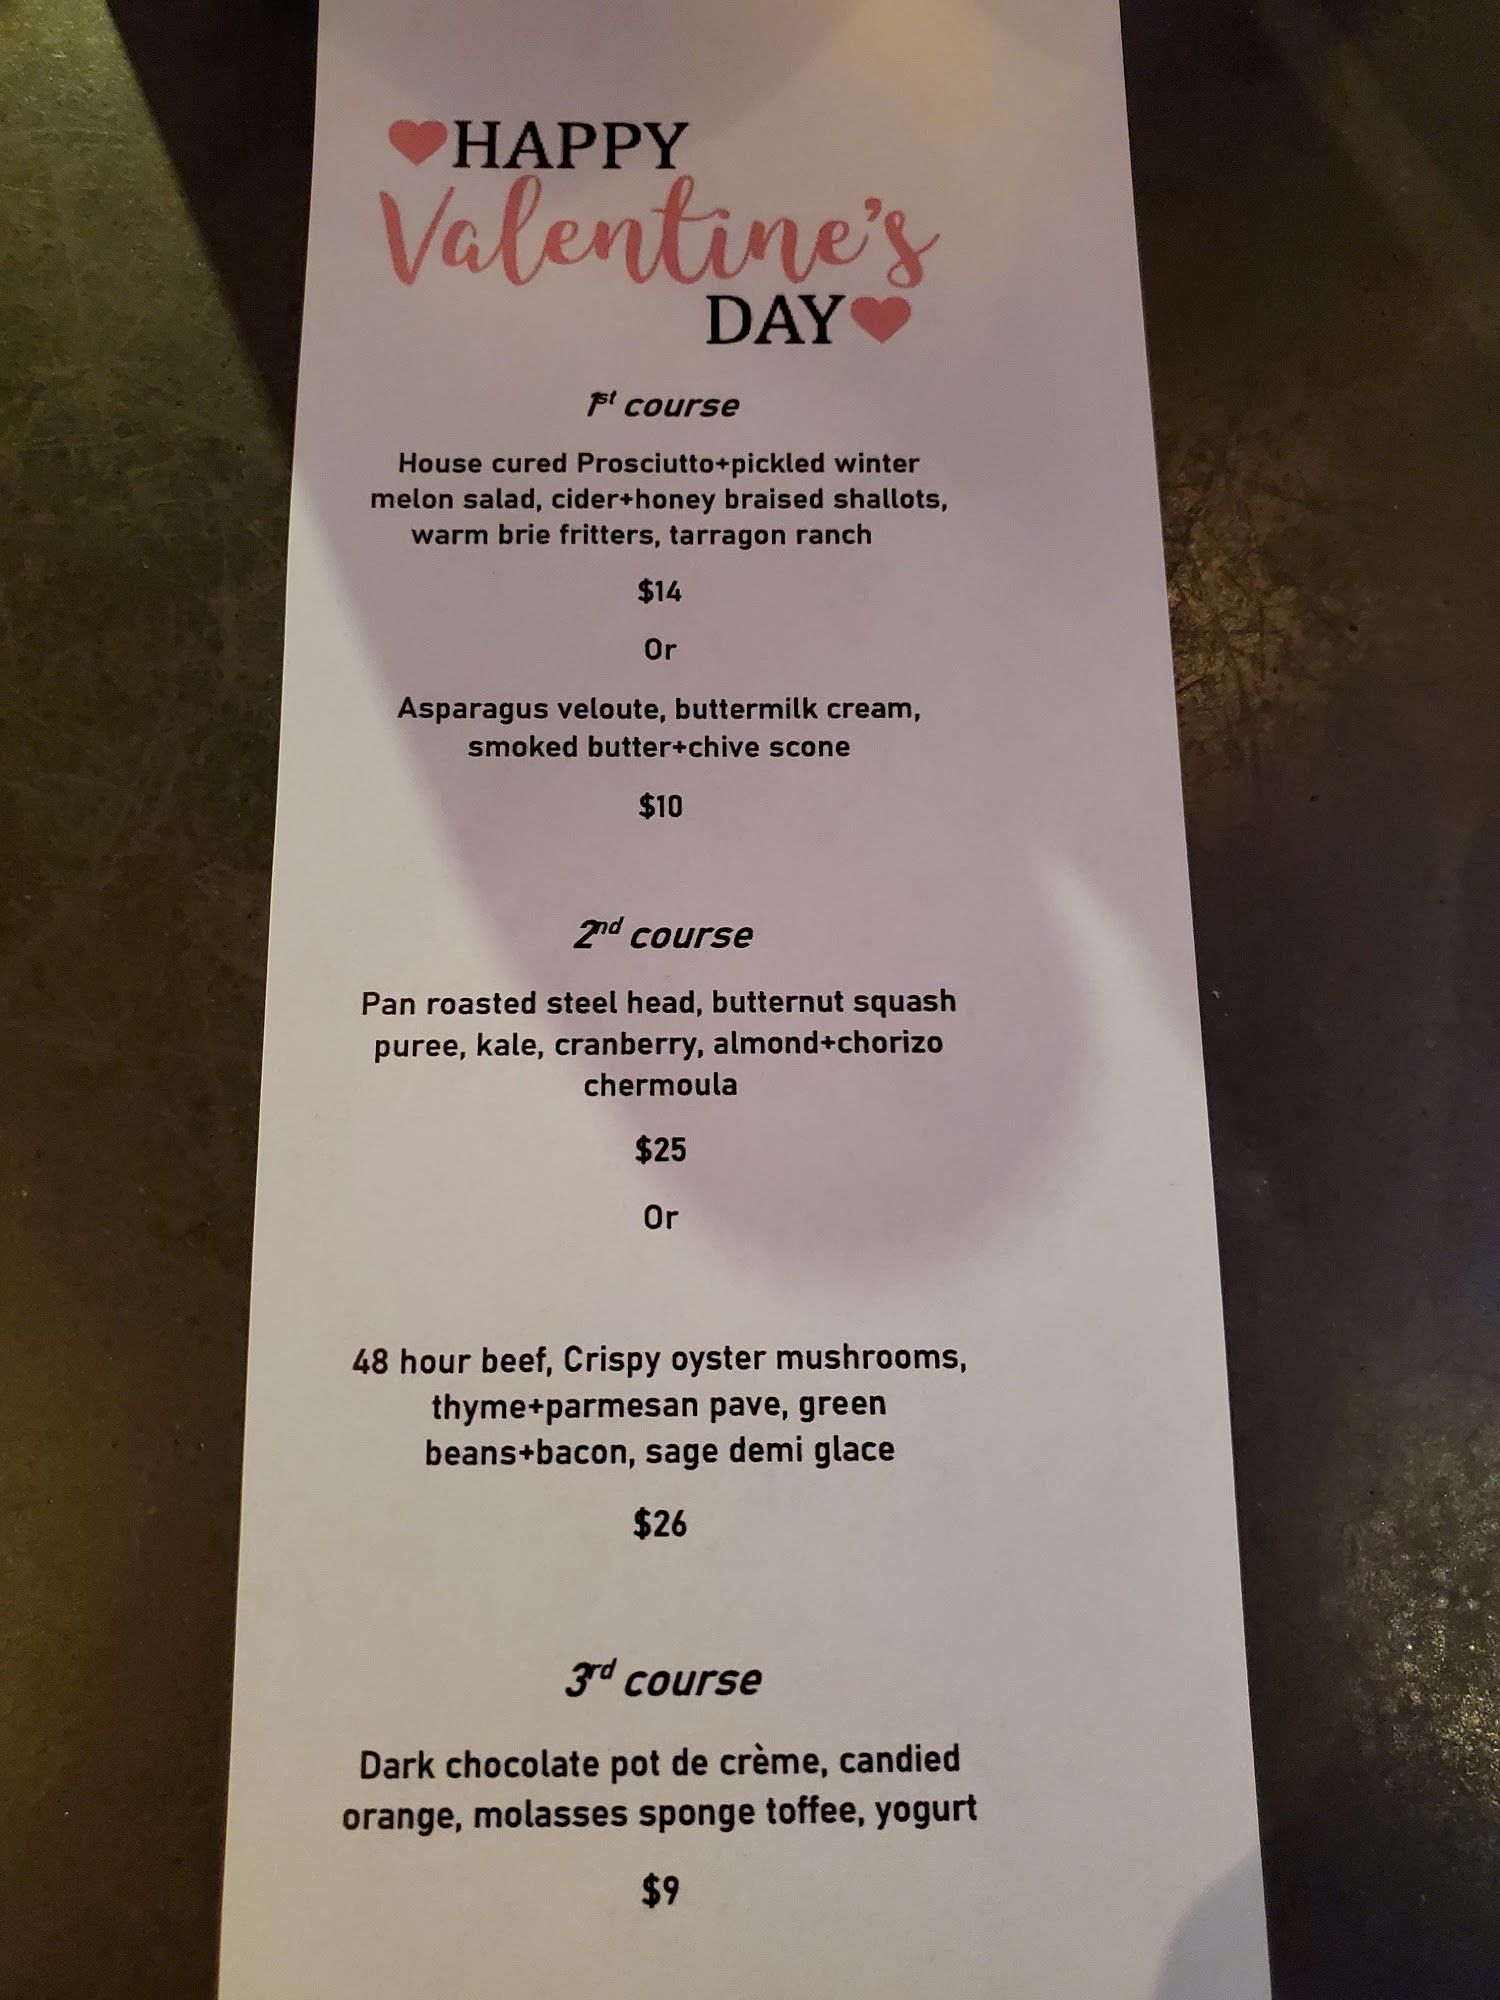 HAPPY
Valentine's
DAY
1st course
House cured Prosciutto+pickled winter
melon salad, cider+honey braised shallots,
warm brie fritters, tarragon ranch
$14
Or
Asparagus veloute, buttermilk cream,
smoked butter+chive scone
$10
2nd course
Pan roasted steel head, butternut squash
puree, kale, cranberry, almond+chorizo
chermoula
$25
Or
48 hour beef, Crispy oyster mushrooms,
thyme+parmesan pave, green
beans+bacon, sage demi glace
$26
3rd course
Dark chocolate pot de crème, candied
orange, molasses sponge toffee, yogurt
$9